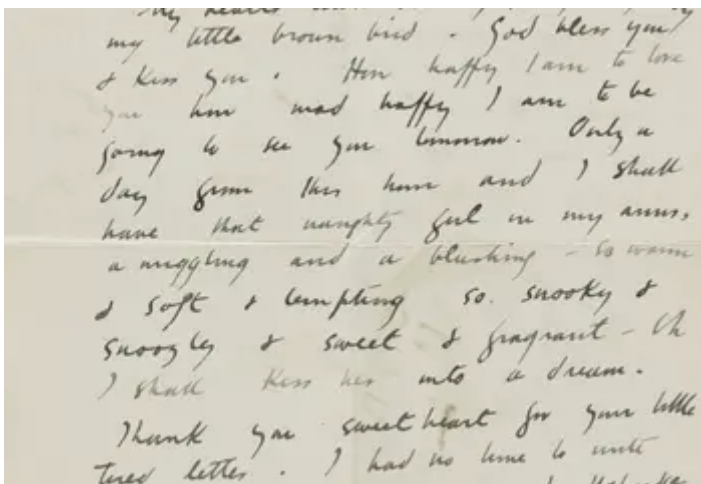 my little brown bird. God bless you
& kiss you. How happy I am to love
you how mad happy I am to be
going to see you tomorrow. Only a
day from this hour and I shall
have that naughty girl in my arms,
a niggling and a blushing – so warm
& soft & tempting so. snooky &
snoozly & sweet & fragrant – Oh
I shall kiss her into a dream.
Thank you sweetheart for your little
tired letter. I had no time to write